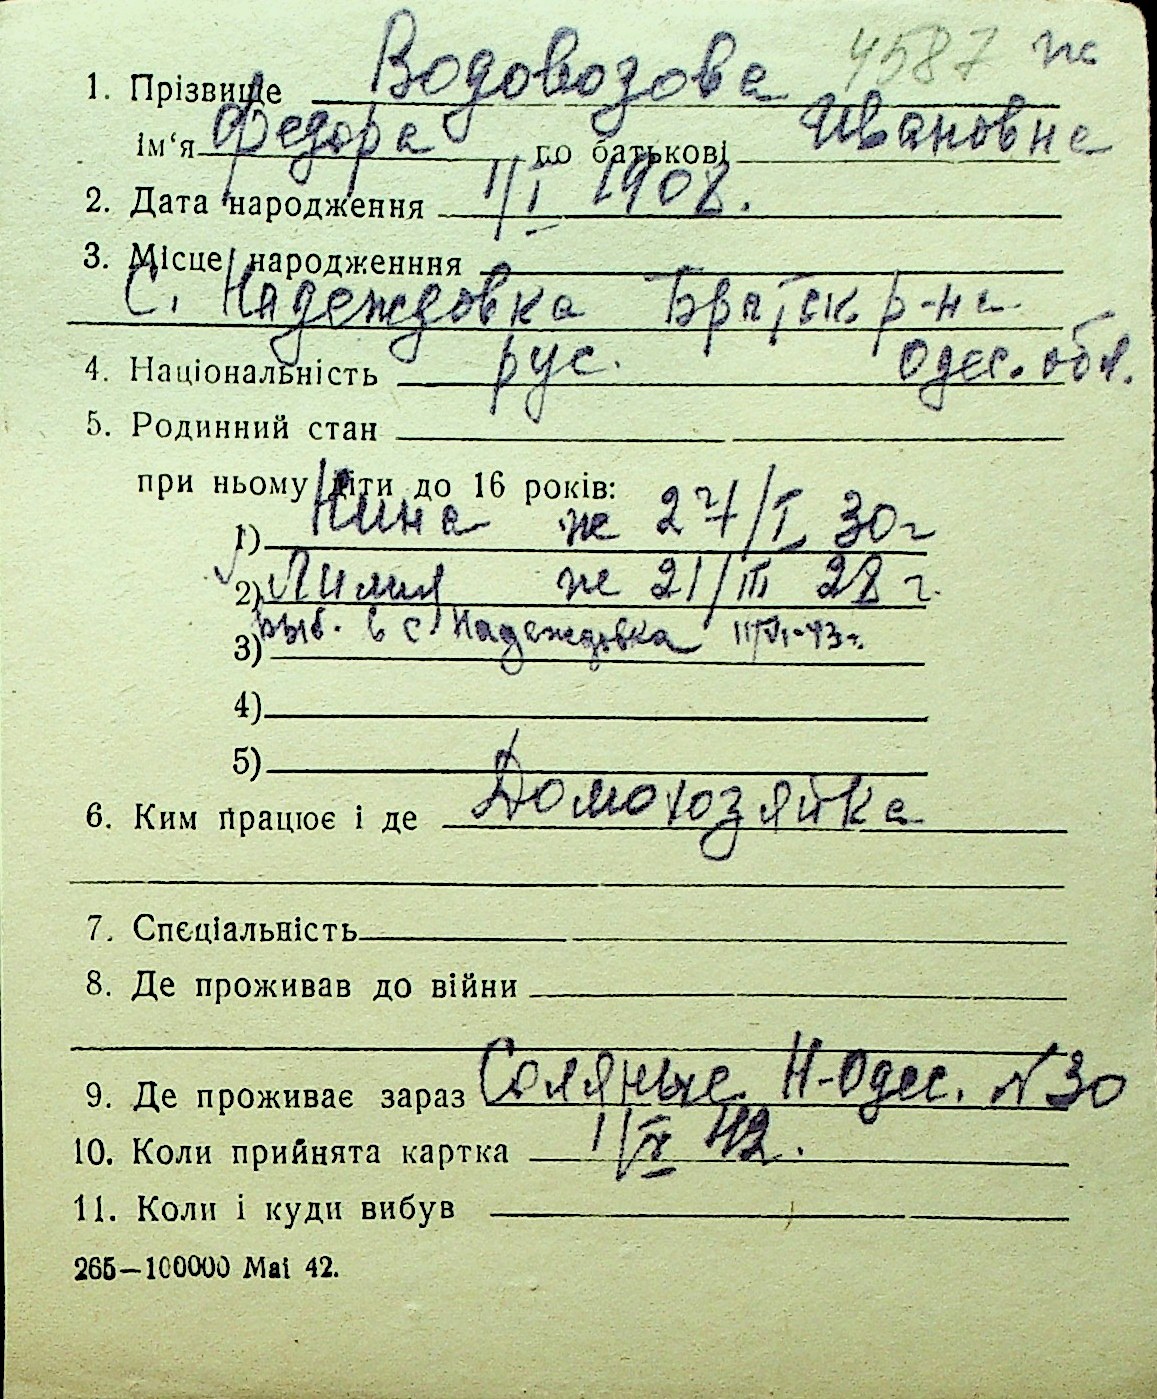 4587 ж
1. Прізвище Водовозова
ім‘я Федора по батькові Ивановна
2. Дата народження 1/I 1908.
3. Місце народженння
С. Надеждовка Братск. р-на
4. Національність рус. Одес. обл.
5. Родинний стан
при ньому діти до 16 років:
1) Нина ж 27/I 30 г
2) Лилия ж 21/III 28 г.
3) выб. в с. Надеждовка 11/VI-43 г.
4)
5)
6. Ким працює і де Домохозяйка
7. Спєціальність
8. Де проживав до війни
9. Де проживає зараз Соляные Н-Одес. N 30
10. Коли прийнята картка 42.
11. Коли і куди вибув
265—100000 Mai 42.